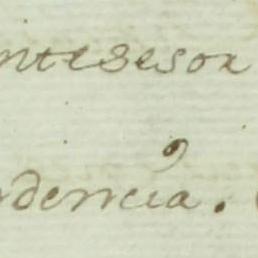 ntesesor
dencia.